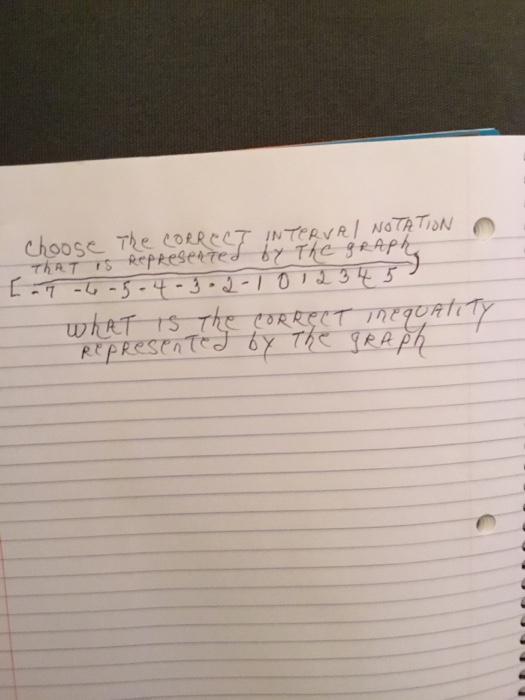 choose The CORRECT INTERVAl NOTATION
THAT IS REPRESENTED by The gRAPh
[-7 -6 -5 -4 -3 -2 -1 0 1 2 3 4 5)
WHAT IS The CORRECT INEQUALITY
REPRESENTED by The gRAPh